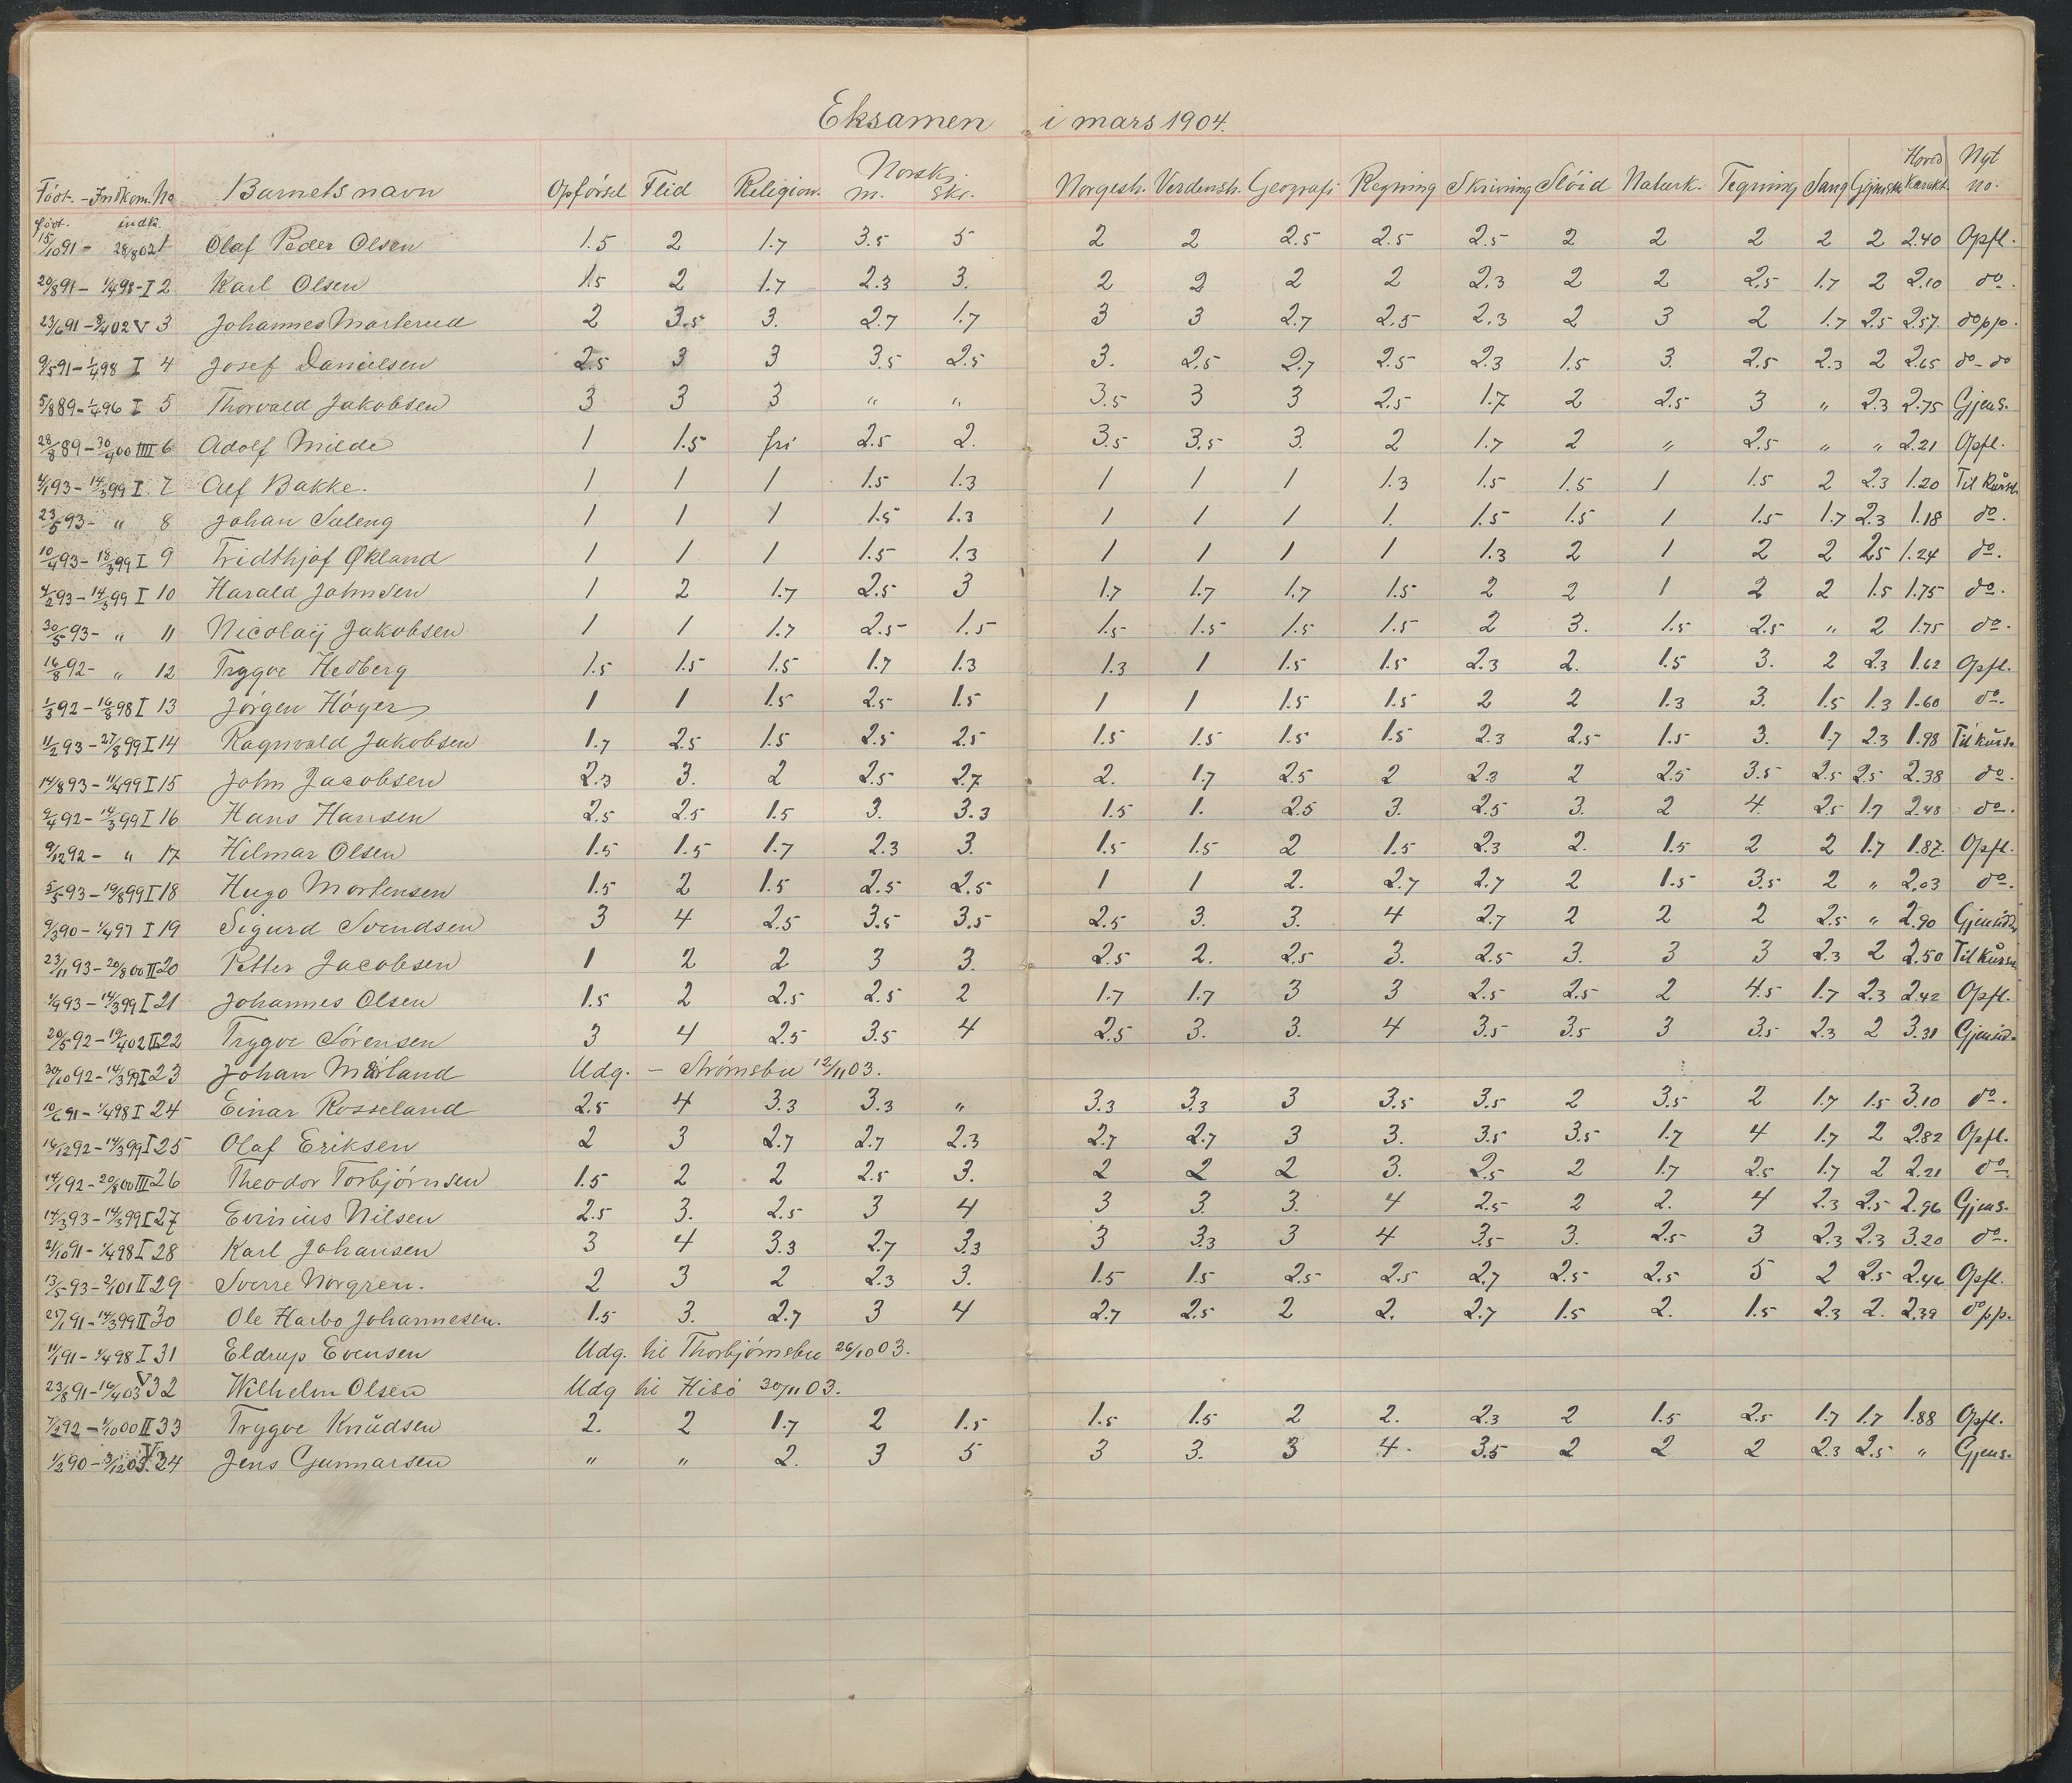 Eksamen i mars 1904.
Født. - Indkom. No Barnets navn Opførsel Flid Religion. Norsk. m. skr. Norgesh. Verdensh. Geografi Regning Skrivning Slöid Naturk. Tegning Sang Gymnstk Hoved Karakt. Nyt no.
født. indk.
15/10 91 - 28/8 02 1 Olaf Peder Olsen 1.5 2 1.7 3.5 5 2 2 2.5 2.5 2.5 2 2 2 2 2 2.40 Opfl.
20/8 91 - 1/4 98 - I 2 Karl Olsen 1.5 2 1.7 2.3 3. 2 2 2 2 2.3 2 2 2.5 1.7 2 2.10 do.
23/6 91 - 8/4 02 V 3 Johannes Marterud 2 3.5 3. 2.7 1.7 3 3 2.7 2.5 2.3 2 3 2 1.7 2.5 2.57. do pp.
9/5 91 - 1/4 98 I 4 Josef Danielsen 2.5 3 3 3.5 2.5 3. 2.5 2.7 2.5 2.3 1.5 3. 2.5 2.3 2 2.65 do - do
5/8 89 - 1/4 96 I 5 Thorvald Jakobsen 3 3 3 " " 3.5 3 3 2.5 1.7 2 2.5 3 " 2.3 2.75 Gjens.
28/8 89 - 30/4 00 IIII 6 Adolf Milde 1 1.5 fri 2.5 2. 3.5 3.5 3. 2 1.7 2 " 2.5 " " 2.21 Opfl.
4/1 93 - 14/3 99 I. 7 Alf Bakke. 1 1 1 1.5 1.3 1 1 1 1.3 1.5 1.5 1 1.5 2 2.3 1.20 Til Kursch
23/5 93 - " 8 Johan Suleng 1 1 1 1.5 1.3 1 1 1 1. 1.5 1.5 1 1.5 1.7 2.3 1.18 do.
10/4 93 - 18/3 99 I 9 Fridthjof Økland 1 1 1 1.5 1.3 1 1 1 1 1.3 2 1 2 2 2.5 1.24 do.
4/2 93 - 14/3 99 I 10 Harald Johnsen 1 2 1.7 2.5 3 1.7 1.7 1.7 1.5 2 2 1 2 2 1.5 1.75 do.
30/5 93 - " 11 Nicolaij Jakobsen 1 1 1.7 2.5 1.5 1.5 1.5 1.5 1.5 2 3. 1.5 2.5 " 2 1.75 do.
16/8 92 - " 12 Trygve Hedberg 1.5 1.5 1.5 1.7 1.3 1.3 1 1.5 1.5 2.3 2. 1.5 3. 2 2.3 1.62 Opfl.
1/3 92 - 16/8 98 I 13 Jörgen Höyer 1 1 1.5 2.5 1.5 1 1 1.5 1.5 2 2 1.3 3. 1.5 1.3 1.60 do.
11/2 93 - 27/8 99 I 14 Ragnvald Jakobsen 1.7 2.5 1.5 2.5 2.5 1.5 1.5 1.5 1.5 2.3 2.5 1.5 3. 1.7 2.3 1.98 Til kurs.
14/8 93 - 11/4 99 I 15 John Jacobsen 2.3 3. 2 2.5 2.7 2. 1.7 2.5 2 2.3 2 2.5 3.5 2.5 2.5 2.38 do.
9/4 92 - 14/3 99 I 16 Hans Hansen 2.5 2.5 1.5 3. 3.3 1.5 1. 2.5 3. 2.5 3. 2 4. 2.5 1.7 2.48 do.
9/12 92 - " 17 Hilmar Olsen 1.5 1.5 1.7 2.3 3. 1.5 1.5 2 1.5 2.3 2. 1.5 2 2 1.7 1.87 Opfl.
5/5 93 - 19/8 99 I 18 Hugo Mortensen 1.5 2 1.5 2.5 2.5 1 1 2. 2.7 2.7 2 1.5 3.5 2 " 2.03 do.
9/3 90 - 1/4 97 I 19 Sigurd Svendsen 3 4 2.5 3.5 3.5 2.5 3. 3. 4 2.7 2 2 2 2.5 " 2.90 Gjensidd
23/11 93 - 20/8 00 II 20 Petter Jacobsen 1 2 2 3 3. 2.5 2. 2.5 3. 2.5 3. 3 3 2.3 2 2.50 Til Kursu
1/9 93 - 14/3 99 I 21 Johannes Olsen 1.5 2 2.5 2.5 2 1.7 1.7 3 3 2.5 2.5 2 4.5 1.7 2.3 2.42 Opfl.
20/5 92 - 19/4 02 II 22 Trygve Sörensen 3 4 2.5 3.5 4 2.5 3. 3. 4 3.5 3.5 3 3.5 2.3 2 3.31 Gjensid.
30/10 92 - 14/3 99 I 23 Johan Mørland Udg. - Strømsbu 12/11 03.
10/6 91 - 1/4 98 I 24 Einar Rosseland 2.5 4 3.3 3.3 " 3.3 3.3 3 3.5 3.5 2 3.5 2 1.7 1.5 3.10 do.
16/12 92 - 14/3 99 I 25 Olaf Eriksen 2 3 2.7 2.7 2.3 2.7 2.7 3 3. 3.5 3.5 1.7 4 1.7 2 2.82 Opfl.
14/1 92 - 20/8 00 III 26 Theodor Torbjörnsen 1.5 2 2 2.5 3. 2 2 2 3. 2.5 2 1.7 2.5 1.7 2 2.21 do
14/3 93 - 14/3 99 I 27 Evinius Nilsen 2.5 3. 2.5 3 4 3 3. 3. 4 2.5 2 2. 4 2.3 2.5 2.96 Gjens.
21/10 91 - 1/4 98 I 28 Karl Johansen 3 4 3.3 2.7 3.3 3 3.3 3 4 3.5 3. 2.5 3 2.3 2.3 3.20 do.
13/5 93 - 2/1 01 II 29 Sverre Norgren. 2 3 2 2.3 3. 1.5 1.5 2.5 2.5 2.7 2.5 2.5 5 2 2.5 2.46 Opfl.
25/1 91 - 14/3 99 II 30 Ole Harbo Johannesen. 1.5 3. 2.7 3 4 2.7 2.5 2 2. 2.7 1.5 2. 1.5 2.3 2. 2.39 do pp.
11/1 91 - 1/4 98 I 31 Eldrup Evensen Udg. til Thorbjörnsbu 26/10 03.
23/8 91 - 16/4 03 V 32 Wilhelm Olsen Udg til Hisö 30/11 03.
7/2 92 - 1/10 00 II 33 Trygve Knudsen 2. 2 1.7 2 1.5 1.5 1.5 2 2. 2.3 2 1.5 2.5 1.7 1.7 1.88 Opfl.
1/2 90 - 3/12 03. V 34 Jens Gunnarsen " " 2. 3 5 3 3. 3 4. 3.5 2 2 2 2.3 2.5 " Gjens.